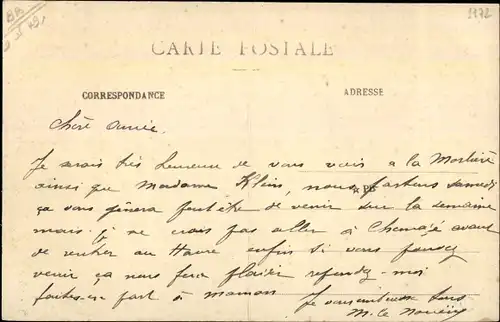 1372
CARTE POSTALE
CORRESPONDANCE
ADRESSE
Chère Amie.
Je serais très heureuse de vous voir a la
ainsi que Madame Klein, nous partons samedi
ça vous gênera peut être de venir dans la semaine
mais je ne crois pas aller à avant
de rentrer au Havre enfin si vous pouvez
venir ça nous fera plaisir repondez-moi
faites-en part à maman Je vous embrasse tous
M. Le